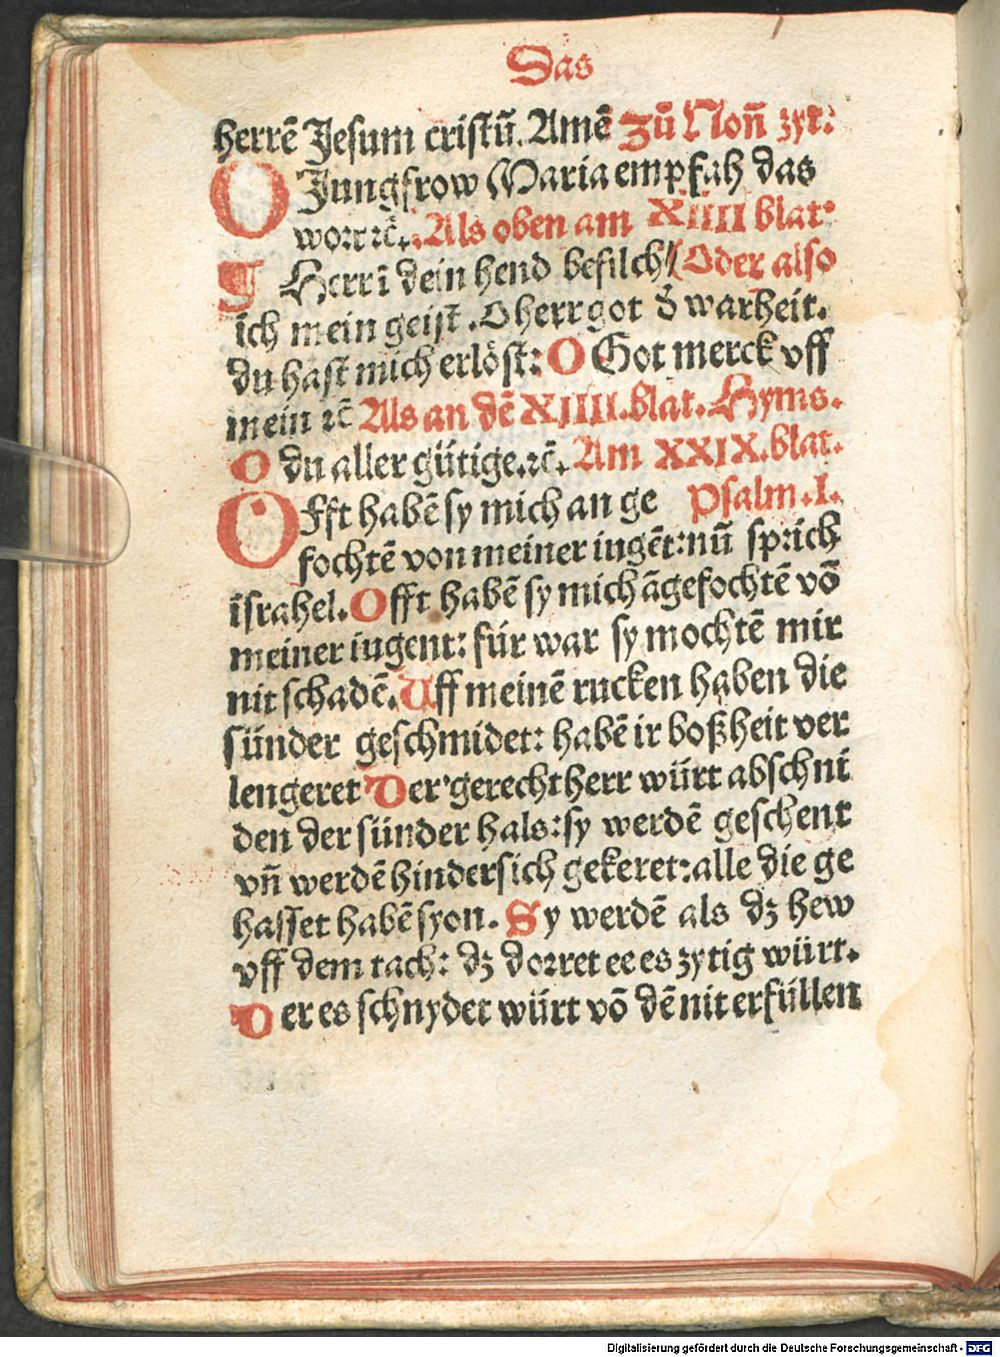 Das
herrē Jesum cristū. Amē Zů Non̄ zyt:
O Jungfrow Maria empfah das
wort ꝛc̄. Als oben am XIIII blat:
¶ Herr ī dein hend befilch // Oder also
ich mein geist. O herr got d̄ warheit.
du hast mich erlöst: O Got merck vff
mein ꝛc̄ Als an dē XIIII. blat. Hyms.
O du aller gütige. ꝛc̄. Am XXIX. blat.
Offt habē sy mich an ge Psalm. I.
fochtē von meiner iugēt: nū sprich
israhel. Offt habē sy mich āgefochtē vō
meiner iugent: für war sy mochtē mir
nit schadē. Uff meinē rucken haben die
sünder geschmidet: habē ir boßheit ver
lengeret Der gerecht herr würt abschni
den der sünder hals: sy werdē geschent
vn̄ werdē hindersich gekeret: alle die ge
hasset habē syon. Sy werdē als dz hew
vff dem tach: dz dorret ee es zytig würt.
Der es schnydet würt vō dē nit erfüllen
Digitalisierung gefördert durch die Deutsche Forschungsgemeinschaft - DFG